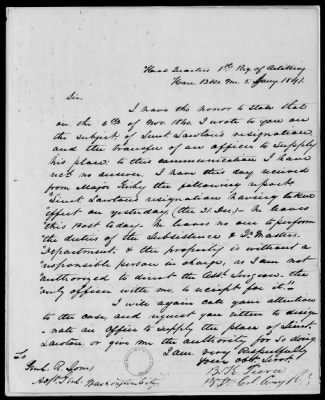 Head Quarters 1st Reg. of Artillery
Jany. 1841.
Sir,
I have the honor to state that
on the 5th of Nov. 1840. I wrote to you on
the subject of Lieut Lawton's resignation,
and the transfer of an officer to supply
his place. to this communication I have
recd no answer. I have this day received
from Major the following report.
"Lieut Lawton's resignation having taken
effect on yesterday (the 31. Dec) he leaves
this Post today. He leaves no one to perform
the duties of the Subsistence & Qr. Masters
Department; & the property is without a
responsible person in charge, as I am not
authorized to direct the Asst. Surgeon, the
only officer with me, to receipt for it."
I will again call your attention
to the case, and request you either to desig-
nate an Officer to supply the place of Lieut
Lawton or give me the authority for so doing
I am, very respectfully
your obt. Servt.
B. K. Pierce
To
Genl. R. Jones
Adjt. Genl. Washington City